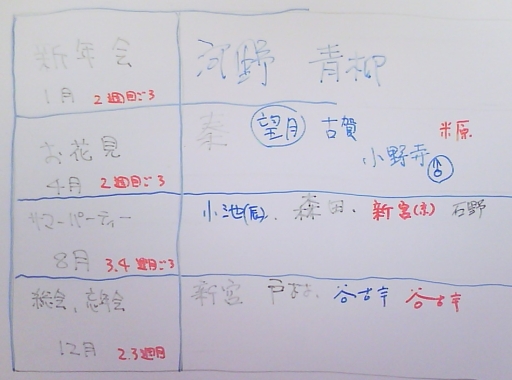 新年会
1月 2週目ごろ
河野 青柳
お花見
4月 2週目ごろ
秦 望月 古賀
米原
小野寺 占
サマーパーティー
8月 3.4週目ごろ
小池(辰)、森田、新宮(京) 石野
総会、忘年会
12月 2.3週目
新宮 谷古宇 谷古宇